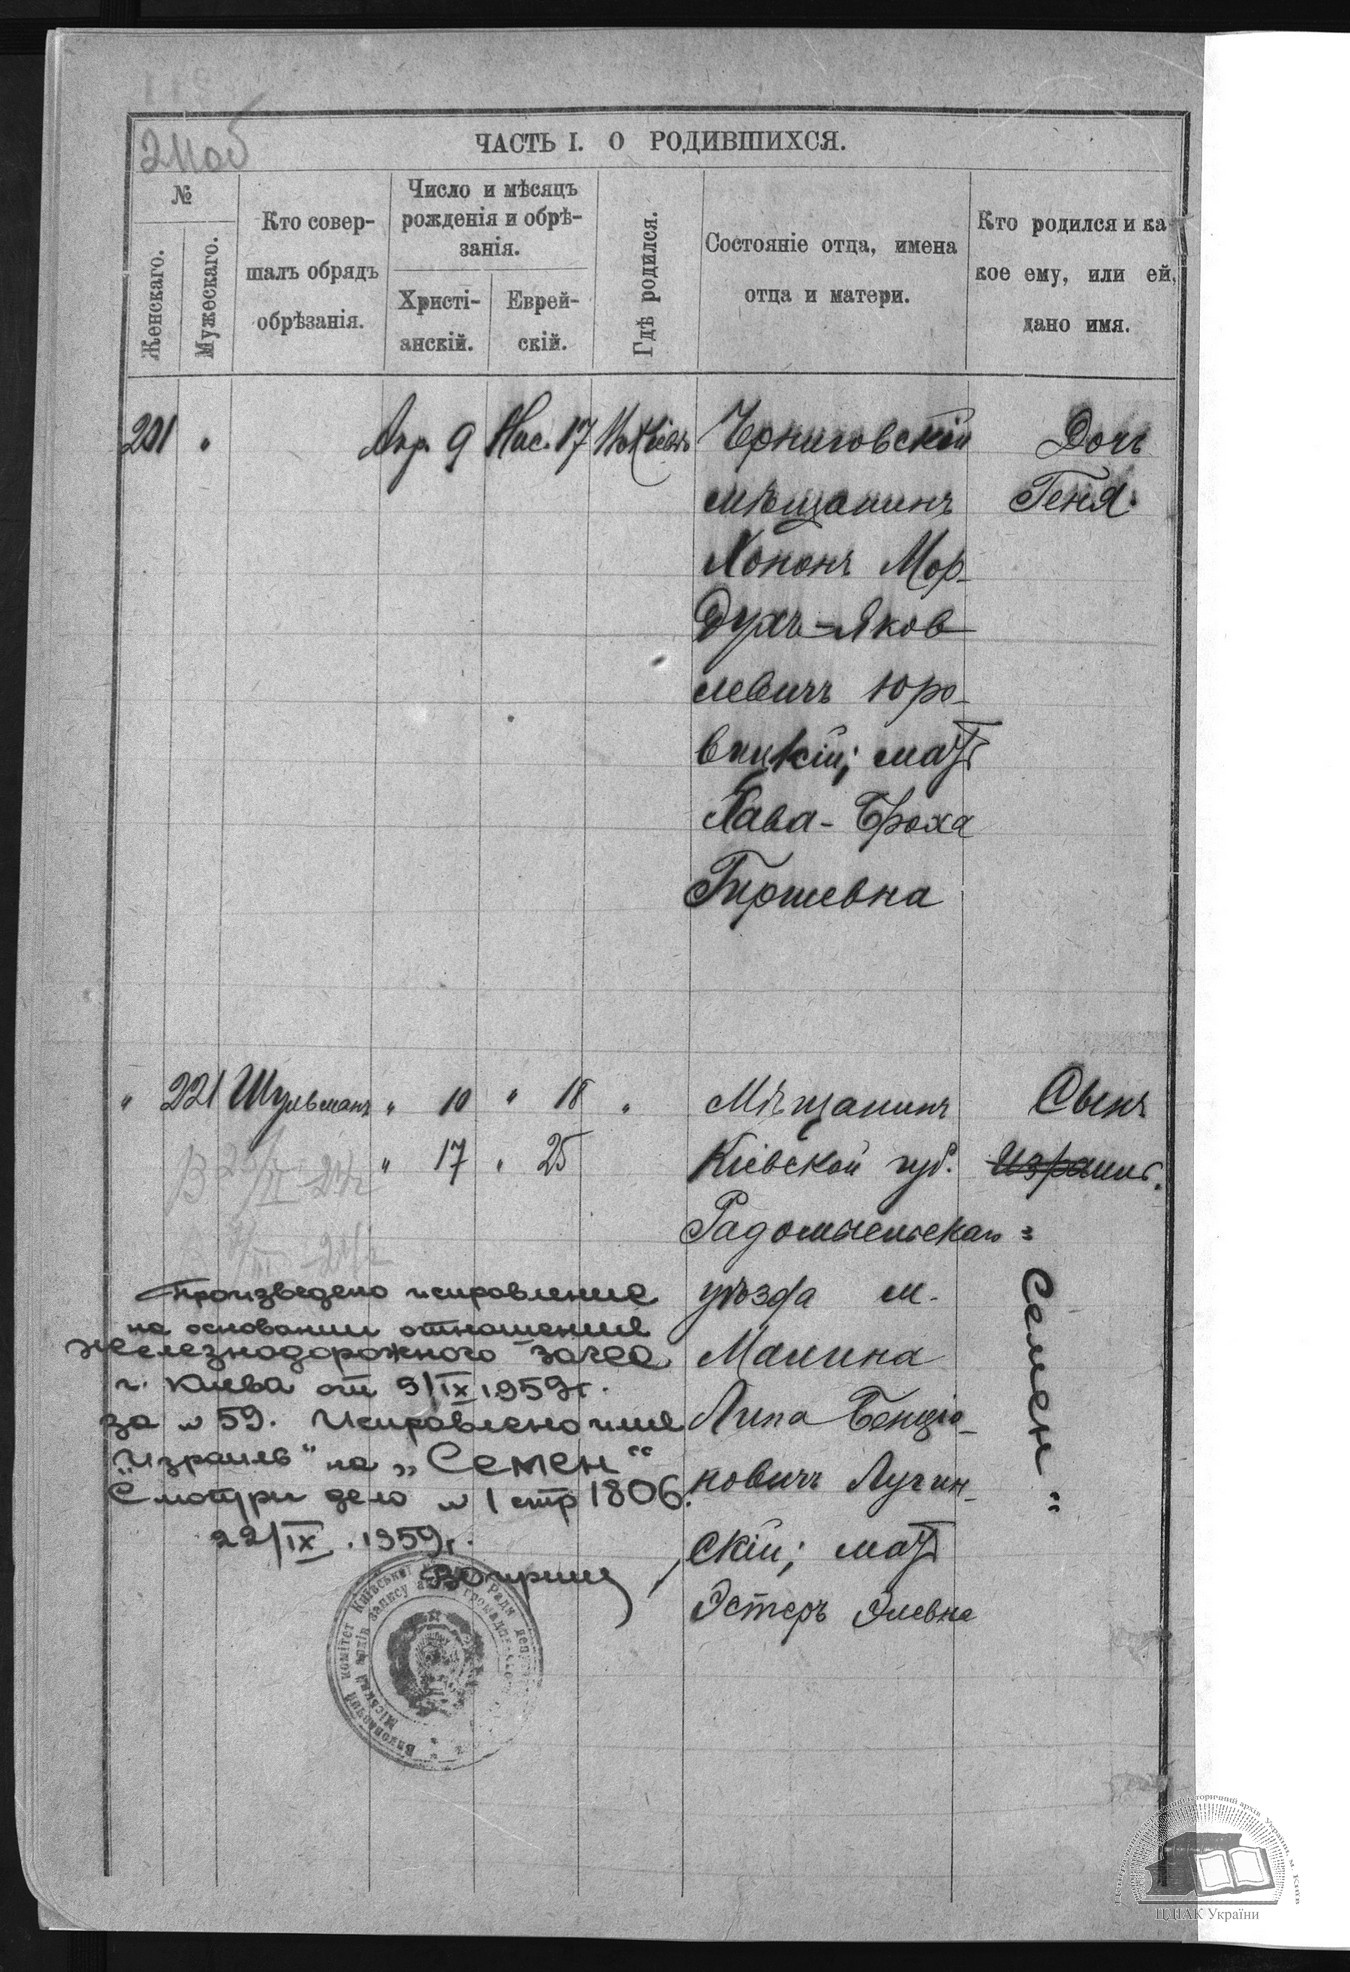 211об
ЧАСТЬ I. О РОДИВШИХСЯ.
№
Женскаго.
Мужескаго.
Кто совер-
шалъ обрядъ
обрѣзанія.
Число и мѣсяцъ
рожденія и обрѣ-
занія.
Христі-
анскій.
Еврей-
скій.
Гдѣ родился.
Состояніе отца, имена
отца и матери.
Кто родился и ка
кое ему, или ей,
дано имя.
201 " Апр. 9 Нис. 17 Въ Кіевѣ
Черниговскій
мѣщанинъ
Хононъ Мор-
духъ-Яков
левичъ Юро-
вицкій; мать
Хава-Броха
Гершевна
Дочь
Геня.
" 221 Шульманъ " 10 " 18 "
" 17 " 25
Мѣщанинъ
Кіевской губ.
Радомысльскаго
уѣзда м.
Малина
Липа Бенціо-
новичъ Лугин-
скій; мать
Эстеръ Элевна
Сынъ
Израиль.
"Семен"
Произведено исправление
на основании отношения
железнодорожного загса
г. Киева от 9/IX 1959г.
за №59. Исправлено имя
"Израиль" на "Семен"
Смотри дело №1 стр 1806.
22/IX.1959г.
Виконавчий комітет Київської Ради депу
Міський відділ запису актів громадян
ЦДІАК України